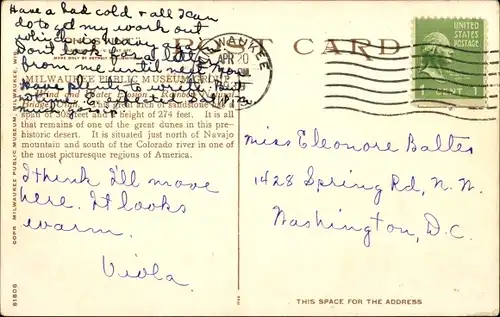 Have a bad cold & all I can
do to get my work out
which is heavy.
Don't look for a letter
from me until next
Have plenty to write but
POST CARD
MILWAUKEE
APR 20
UNITED STATES
POSTAGE
1 CENT 1
MILWAUKEE PUBLIC MUSEUM GROUP
Wind and Water Erosion
Bridge, Utah. This great rich of sandstone has a
span of 308 feet and a height of 274 feet. It is all
that remains of one of the great dunes in this pre-
historic desert. It is situated just north of Navajo
mountain and south of the Colorado river in one of
the most picturesque regions of America.
I think I'll move
here. It looks
warm.
Viola.
Miss Eleonore Baltes
1428 Spring Rd, N.W.
Washington, D.C.
COPR. MILWAUKEE PUBLIC MUSEUM, MILWAUKEE, WIS.
81806
THIS SPACE FOR THE ADDRESS